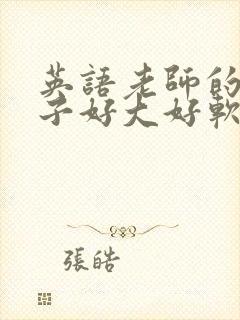 英語老師的
子好大好軟
張皓